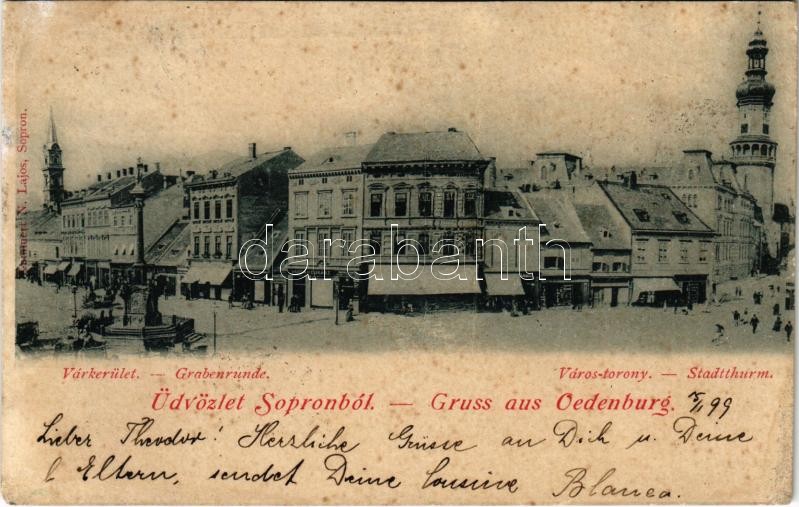 Kummert N. Lajos, Sopron.
darabanth
Várkerület. — Grabenrunde.
Város-torony. — Stadtthurm.
Üdvözlet Sopronból. — Gruss aus Oedenburg.
99
Lieber Theodor! Herzliche Grüsse an Dich u. Deine
l Eltern, sendet Deine Cousine Blanca.